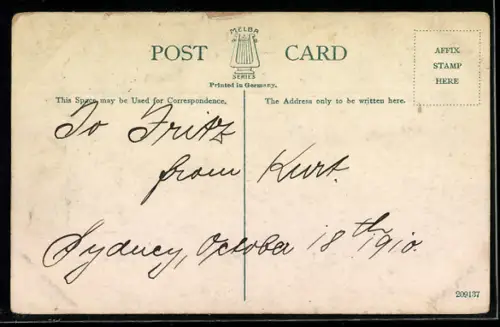 MELBA
POST CARD
SERIES
Printed in Germany.
AFFIX
STAMP
HERE
This Space may be Used for Correspondence.
The Address only to be written here.
To Fritz
from Kurt.
Sydney, October 18th 1910.
209137